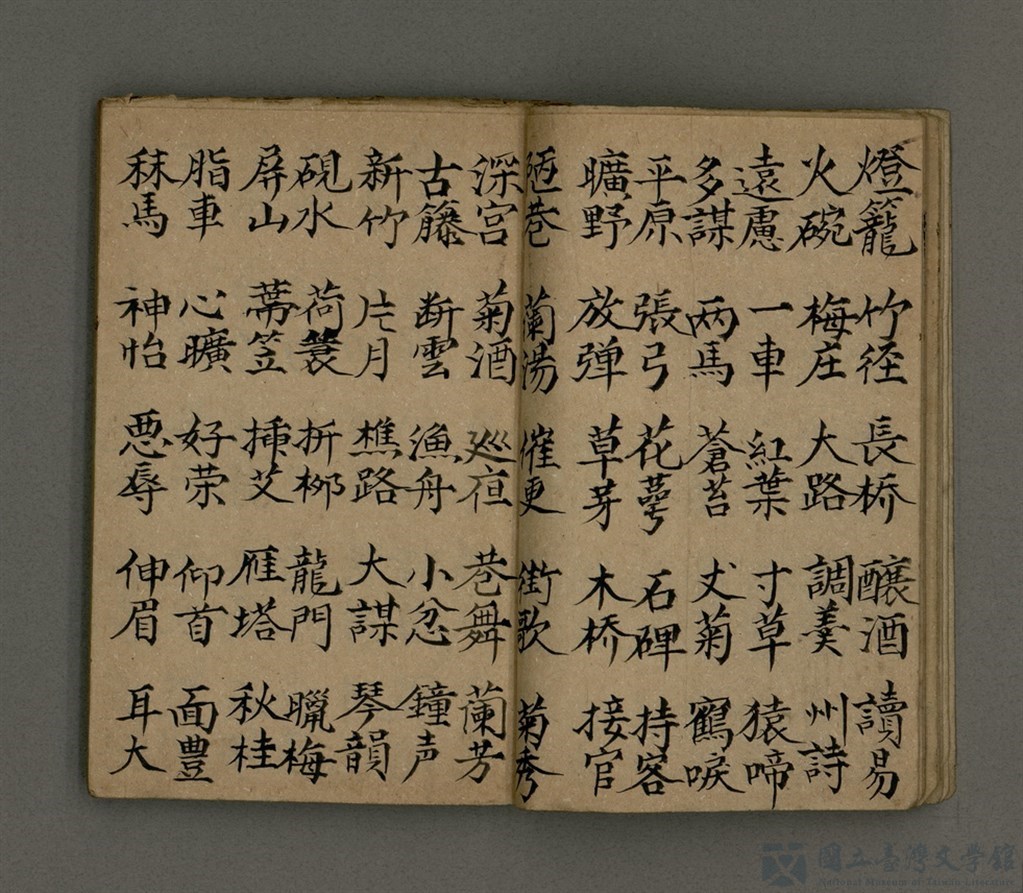 燈籠 竹径 長桥 釀酒 讀易
火碗 梅庄 大路 調羹 州詩
遠慮 一車 紅葉 寸草 猿啼
多謀 两馬 蒼苔 丈菊 鶴唳
平原 張弓 花萼 石碑 持客
曠野 放弹 草芽 木桥 接官
陋巷 蘭湯 催更 街歌 菊秀
深宫 菊酒 巡夜 巷舞 蘭芳
古籐 断雲 漁舟 小忿 鐘声
新竹 片月 樵路 大謀 琴韻
硯水 荷蓑 折柳 龍門 臘梅
屏山 蒂笠 挿艾 雁塔 秋桂
脂車 心曠 好荣 仰首 面豊
秣馬 神怡 悪辱 伸眉 耳大
國立臺灣文学館
National Museum of Taiwan Literature